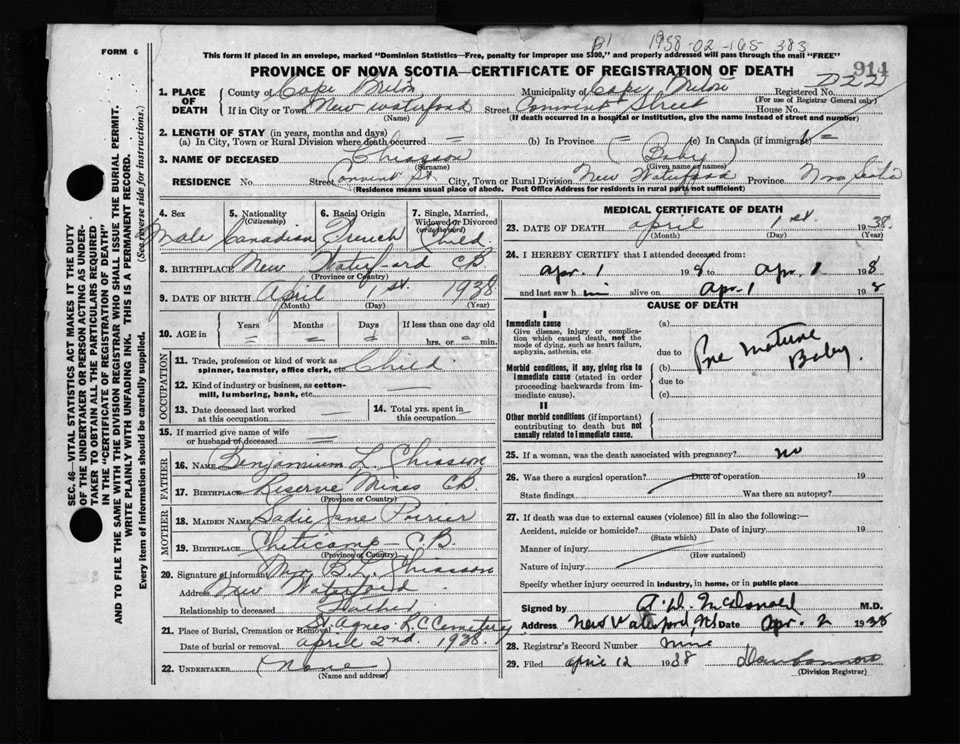 FORM 6
1938-02-168-383
This form if placed in an envelope, marked "Dominion Statistics—Free, penalty for improper use $300," and properly addressed will pass through the mail "FREE"
914
PROVINCE OF NOVA SCOTIA—CERTIFICATE OF REGISTRATION OF DEATH
1. PLACE OF DEATH
County of Cape Breton Municipality of Cape Breton Registered No.
(For use of Registrar General only)
If in City or Town New Waterford Street Convent Street House No.
(Name) (If death occurred in a hospital or institution, give the name instead of street and number)
2. LENGTH OF STAY (in years, months and days)
(a) In City, Town or Rural Division where death occurred = (b) In Province = (c) In Canada (if immigrant) =
3. NAME OF DECEASED Chiasson (Baby)
(Surname) (Given name or names)
RESIDENCE No. Street Convent St. City, Town or Rural Division New Waterford Province Nova Scotia
(Residence means usual place of abode. Post Office Address for residents in rural parts not sufficient)
4. Sex Male
5. Nationality (Citizenship) Canadian
6. Racial Origin French
7. Single, Married, Widowed or Divorced (write the word) Child
8. BIRTHPLACE New Waterford CB
(Province or Country)
9. DATE OF BIRTH April 1st. 1938
(Month) (Day) (Year)
10. AGE in Years Months Days If less than one day
= = hrs. or = min.
OCCUPATION
11. Trade, profession or kind of work as spinner, teamster, office clerk, etc. Child
12. Kind of industry or business, as cotton-mill, lumbering, bank, etc.
13. Date deceased last worked at this occupation
14. Total yrs. spent in this occupation
15. If married give name of wife or husband of deceased =
FATHER
16. NAME Benjamium L. Chiasson
17. BIRTHPLACE Reserve Mines CB
(Province or Country)
MOTHER
18. MAIDEN NAME Sadie Jane Poirier
19. BIRTHPLACE Cheticamp - C.B.
(Province or Country)
20. Signature of informant Mr. B. L. Chiasson
Address New Waterford
Relationship to deceased Father
21. Place of Burial, Cremation or Removal St. Agnes R.C. Cemetery
Date of burial or removal April 2nd. 1938.
22. UNDERTAKER (None)
(Name and address)
MEDICAL CERTIFICATE OF DEATH
23. DATE OF DEATH April 1st. 1938.
(Month) (Day) (Year)
24. I HEREBY CERTIFY that I attended deceased from:
Apr. 1 1938 to Apr. 1 1938
and last saw him alive on Apr. 1 1938
CAUSE OF DEATH
I
Immediate cause
Give disease, injury or complication which caused death, not the mode of dying, such as heart failure, asphyxia, asthenia, etc.
(a)
due to
Morbid conditions, if any, giving rise to immediate cause (stated in order proceeding backwards from immediate cause).
(b)
due to
(c)
Pre mature
Baby.
II
Other morbid conditions (if important) contributing to death but not causally related to immediate cause.
25. If a woman, was the death associated with pregnancy? no
26. Was there a surgical operation? Date of operation 19
State findings Was there an autopsy?
27. If death was due to external causes (violence) fill in also the following:—
Accident, suicide or homicide? Date of injury 19
(State which)
Manner of injury
(How sustained)
Nature of injury
Specify whether injury occurred in industry, in home, or in public place
Signed by A. D. McDonald M.D.
Address New Waterford, NS Date Apr. 2 1938
28. Registrar's Record Number nine
29. Filed April 12 1938
(Division Registrar)
SEC. 46—VITAL STATISTICS ACT MAKES IT THE DUTY
OF THE UNDERTAKER OR PERSON ACTING AS UNDERTAKER
TO OBTAIN ALL THE PARTICULARS REQUIRED
IN THE "CERTIFICATE OF REGISTRATION OF DEATH"
AND TO FILE THE SAME WITH THE DIVISION REGISTRAR WHO SHALL ISSUE THE BURIAL PERMIT.
WRITE PLAINLY WITH UNFADING INK. THIS IS A PERMANENT RECORD.
Every item of information should be carefully supplied. (See reverse side for instructions.)